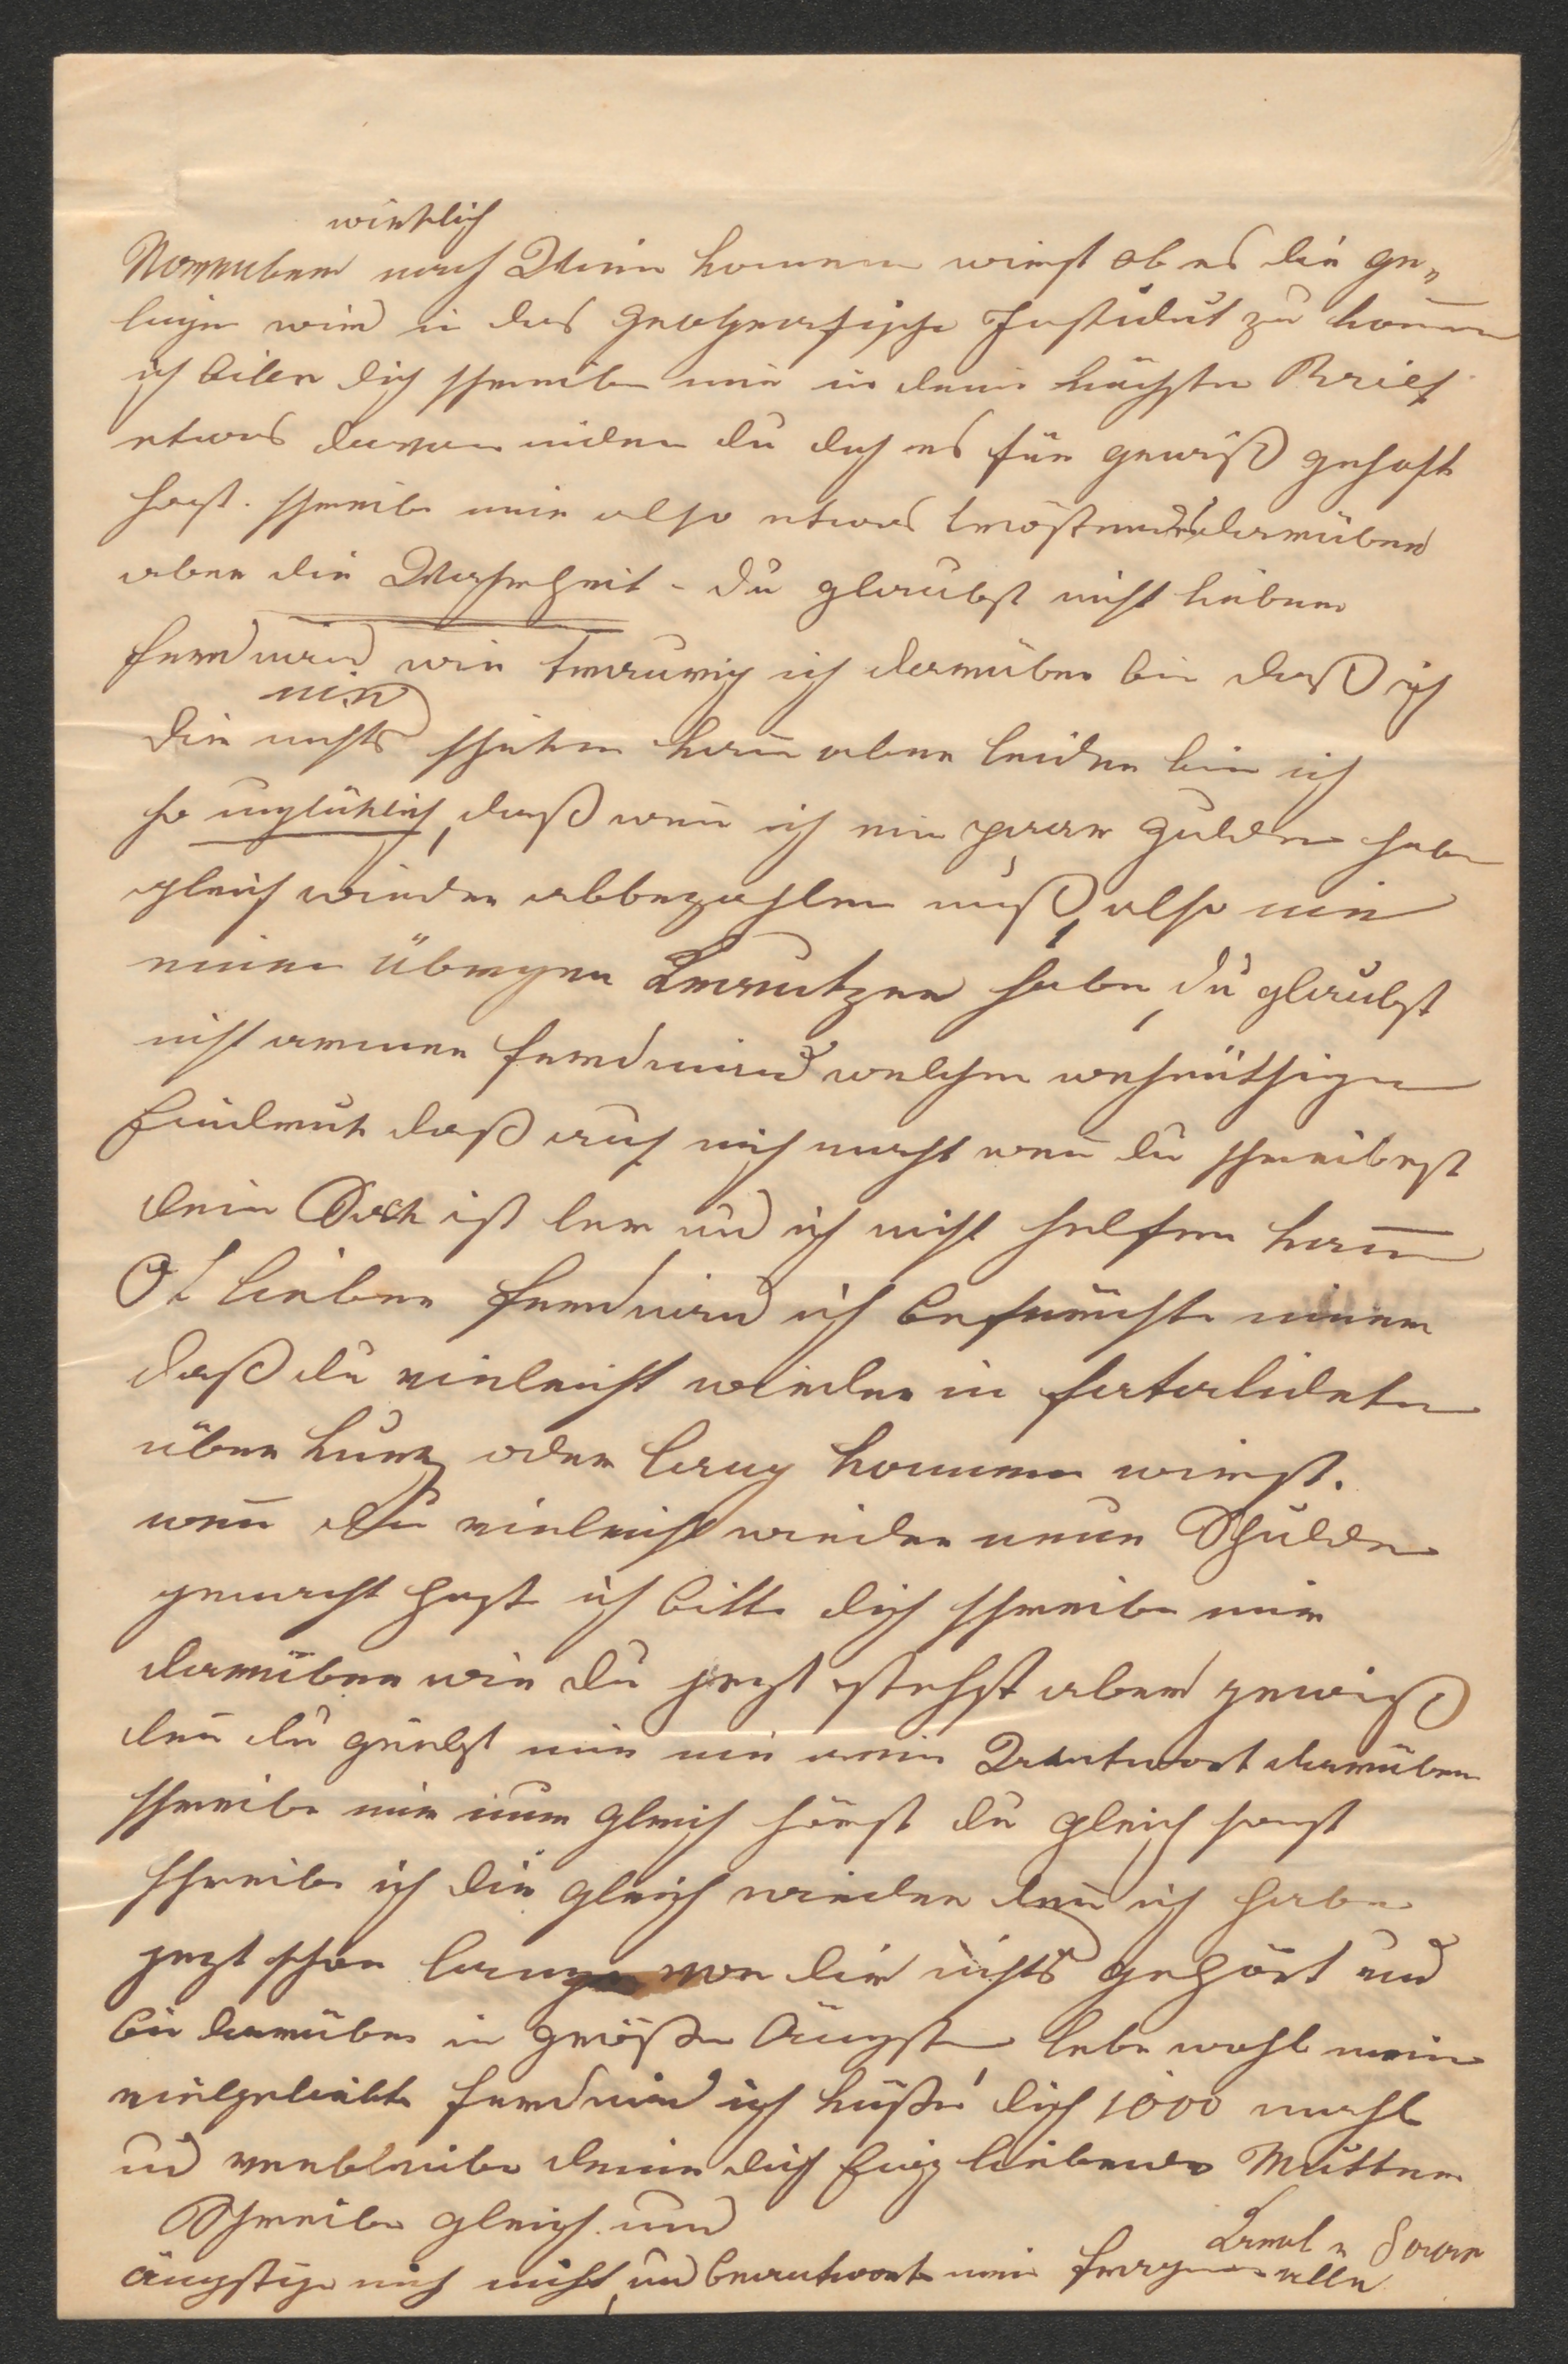 wirklich
November nach Wien kommen wirst ob es dir ge„
lingen wird in das geografische Institut zu kommen
ich bitte dich schreibe mir in dein nächsten Brief
etwas davon indem du doch es für gewiß gehoft
hast. schreibe mir also etwas tröstendes darüber
aber die Wahrheit - du glaubst nicht lieber
Ferdinand wie traurig ich darüber bin daß ich
nie
dir nichts schiken kan̄ aber leider bin ich
so unglüklich, daß wen̄ ich ein paar Gulden habe
gleich wieder abbezahlen muß, also nie
einen übrigen Kreutzer habe, du glaubst
nicht armer Ferdinand welchen wehmüthigen
Eindruk daß auf mich macht wen̄ du schreibest
dein Sack ist ler und ich nicht helfen kan̄
O lieber Ferdinand ich befürchte immer
daß du vieleicht wieder in fataliteten
über kurz oder lang kommen wirst.
wen̄ du vieleicht wieder neue Schulden
gemacht hast ich bitte dich schreibe mir
darüber wie du jezt stehst aber gewiß
den̄ du giebst mir nie eine Antwort darüber
schreibe mir nur gleich hörst du gleich sonst
schreibe ich dir gleich wieder den̄ ich habe
jezt schon lange von dir nichts gehört und
bin darüber in größten Ängsten lebe wohl mein
vielgeliebter Ferdinand ich küße dich 1000 mahl
und verbleibe deine dich Ewig liebende Mutter
Schreibe gleich und
ängstige mich nicht, und beantworte mir Fragen alle